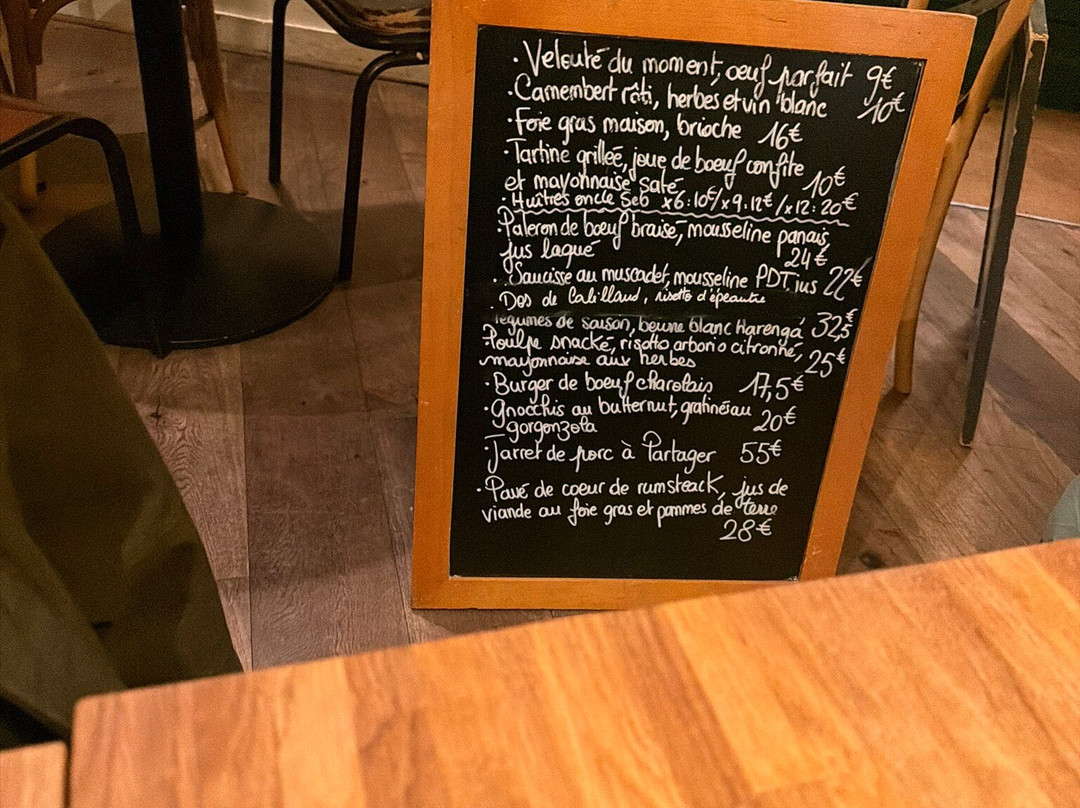 · Velouté du moment, oeuf parfait 9€
· Camembert rôti, herbes et vin blanc 10€
· Foie gras maison, brioche 16€
· Tartine grillée, joue de boeuf confite
et mayonnaise saté 10€
· Huîtres oncle Seb x6:10€/x9.12€/x12:20€
· Paleron de boeuf braisé, mousseline panais,
jus laqué 24€
· Saucisse au muscadet, mousseline PDT, jus 22€
· Dos de Cabillaud, risotto d'épeautre
légumes de saison, beurre blanc Harenga 32,5€
Poulpe snacké, risotto arborio citronné,
mayonnaise aux herbes 25€
· Burger de boeuf charolais 17,5€
· Gnocchis au butternut, gratiné au
gorgonzola 20€
· Jarret de porc à Partager 55€
· Pavé de coeur de rumsteack, jus de
viande au foie gras et pommes de terre
28€